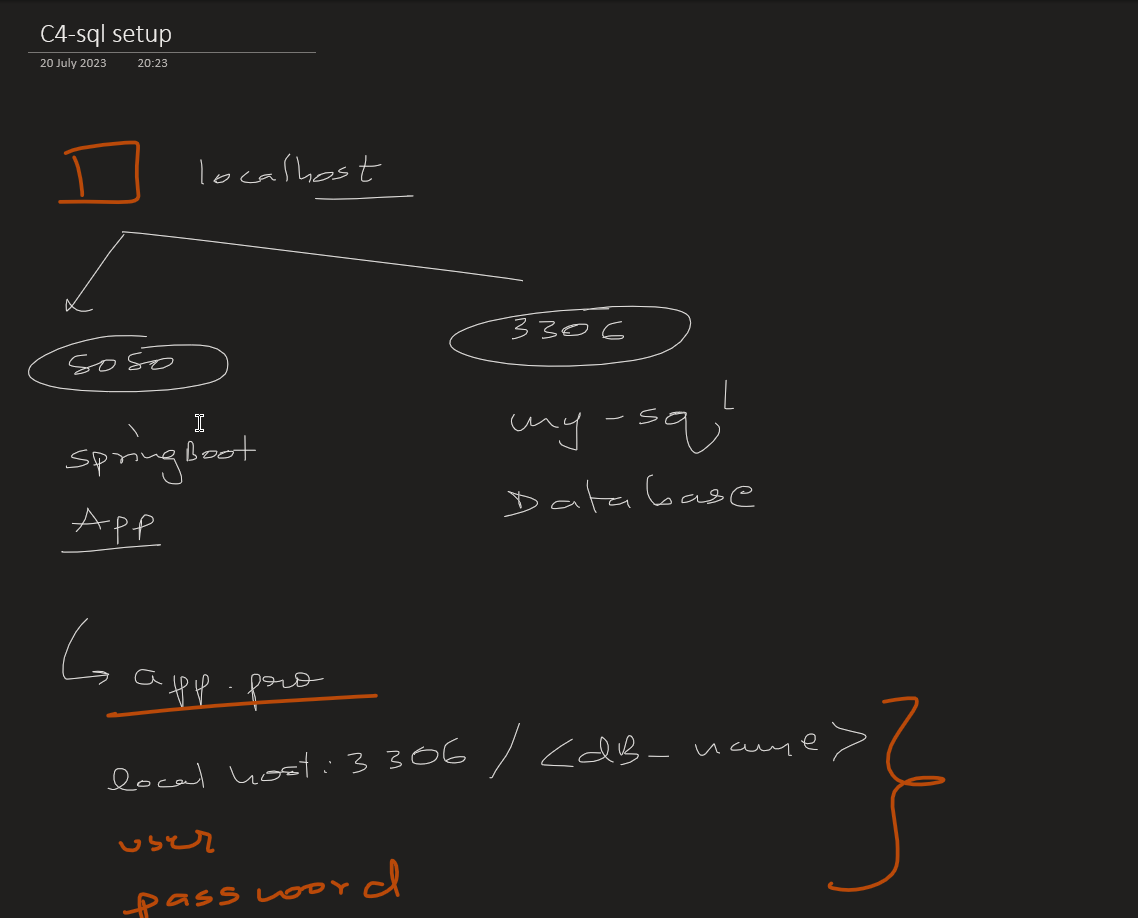 C4-sql setup
20 July 2023 20:23
localhost
5050
3306
springBoot
App
my-sql
Database
app.pro
localhost:3306 / <dB_name>
user
password